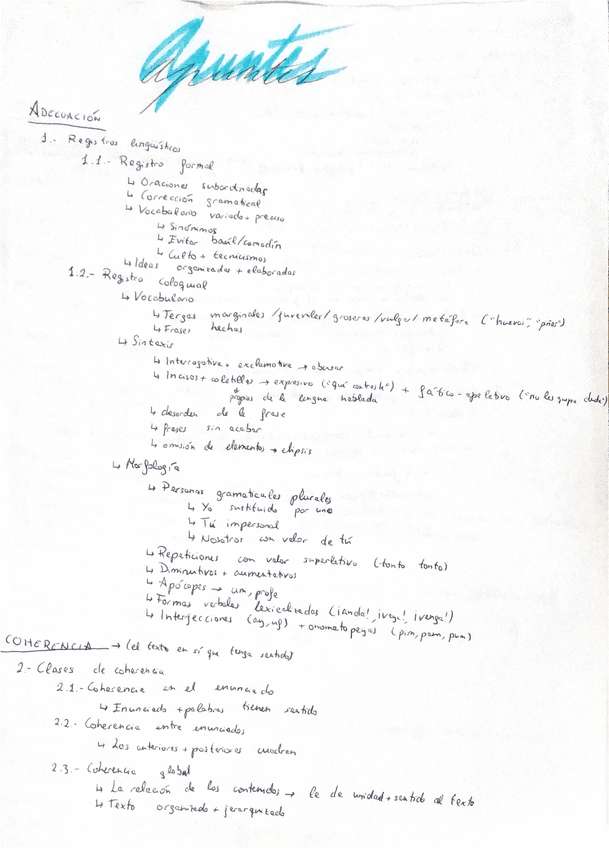 Apuntes
ADECUACIÓN
1.- Registros lingüísticos
1.1.- Registro formal
↳ Oraciones subordinadas
↳ Corrección gramatical
↳ Vocabulario variado + preciso
↳ Sinónimos
↳ Evitar baúl/comodín
↳ Culto + tecnicismos
↳ Ideas organizadas + elaboradas
1.2.- Registro coloquial
↳ Vocabulario
↳ Jergas marginales/juveniles/groseras/vulgar/metáfora ("huevos", "piños")
↳ Frases hechas
↳ Sintaxis
↳ Interrogativa + exclamativa → abusar
↳ Incisos + coletillas → expresivo ("qué") + fático-apelativo ("no les quepa duda")
propios de la lengua hablada
↳ desorden de la frase
↳ frases sin acabar
↳ omisión de elementos → elipsis
↳ Morfología
↳ Personas gramaticales plurales
↳ Yo sustituido por uno
↳ Tú impersonal
↳ Nosotros con valor de tú
↳ Repeticiones con valor superlativo (tonto tonto)
↳ Diminutivos + aumentativos
↳ Apócopes → um, profe
↳ Formas verbales lexicalizadas (¡anda!, ¡vaya!, ¡venga!)
↳ Interjecciones (ay, uf) + onomatopeyas (pim, pam, pum)
COHERENCIA → (el texto en sí que tenga sentido)
2.- Clases de coherencia
2.1.- Coherencia en el enunciado
↳ Enunciado + palabras tienen sentido
2.2- Coherencia entre enunciados
↳ Los anteriores + posteriores cuadren
2.3.- Coherencia global
↳ La relación de los contenidos → le da unidad + sentido al texto
↳ Texto organizado + jerarquizado